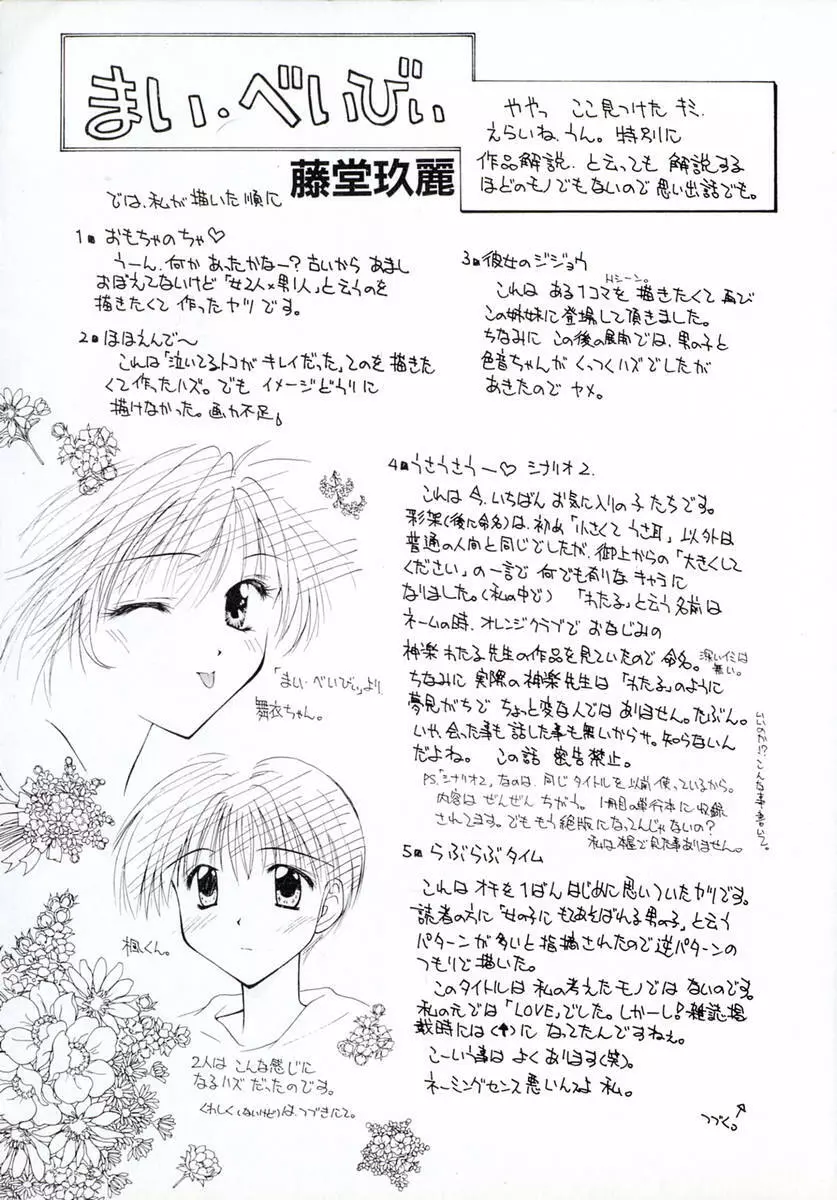 まい・べいびぃ
藤堂玖麗
ややっ ここ見つけた キミ。
えらいね、うん。特別に
作品解説、と云っても 解説する
ほどのモノでもないので 思い出話でも。
では、私が描いた順に
1■ おもちゃのちゃ♡
うーん、何か あったかなー？古いから あまし
おぼえてないけど「女2人×男1人」と云うのを
描きたくて 作ったヤツ です。
2■ ほほえんで〜
これは「泣いてるトコが キレイだった」てのを 描きた
くて 作ったハズ。でも イメージどうりに
描けなかった。画力不足。
3■ 彼女のジジョウ
これは ある1コマを 描きたくて 再び
Hシーン。
この姉妹に登場して頂きました。
ちなみに この後の展開では、男の子と
色音ちゃんが くっつくハズでしたが
あきたので ヤメ。
4■ うさうさうー♡ シナリオ2.
これは 今、いちばん お気に入りの 子たちです。
彩架(後に命名)は、初め「小さくて うさ耳」以外は
普通の人間と同じでしたが、御上からの「大きくして
ください」の一言で 何でも有りな キャラに
なりました。(私の中で) 「わたる」と云う 名前は
ネームの時、オレンジクラブで おなじみの
神楽 わたる先生の作品を 見ていたので 命名。
深いイミは
無い。
ちなみに 実際の神楽先生は 「わたる」のように
夢見がちで ちょっと変な人では ありません。たぶん。
いや、会った事も 話した事も 無いからサ。知らないん
だよね。 この話 密告禁止。
いいのか!? こんな事書いて。
PS.「シナリオ2」なのは、同じタイトルを以前 使っているから。
内容は ぜんぜん ちがう。1冊目の単行本に収録
されてます。でも もう絶版になってんじゃないの？
私は本屋で見た事ありません。
5■ らぶらぶタイム
これは オチを 1ばん はじめに思いついたヤツです。
読者の方に「女の子に もてあそばれる男の子」と云う
パターンが 多いと指摘されたので 逆パターンの
つもりで描いた。
このタイトルは 私の考えたモノでは ないのです。
私の元では「LOVE」でした。しかーし!雑誌掲
載時には(↑)に なってたんですねぇ。
こーいう事は よく あります(笑)。
ネーミングセンス 悪いんよ 私。
つづく。
「まい・べいびぃ」より、
舞衣ちゃん。
楓くん。
2人は こんな感じに
なるハズ だったのです。
くわしく(ないけど)は、つづきにて。